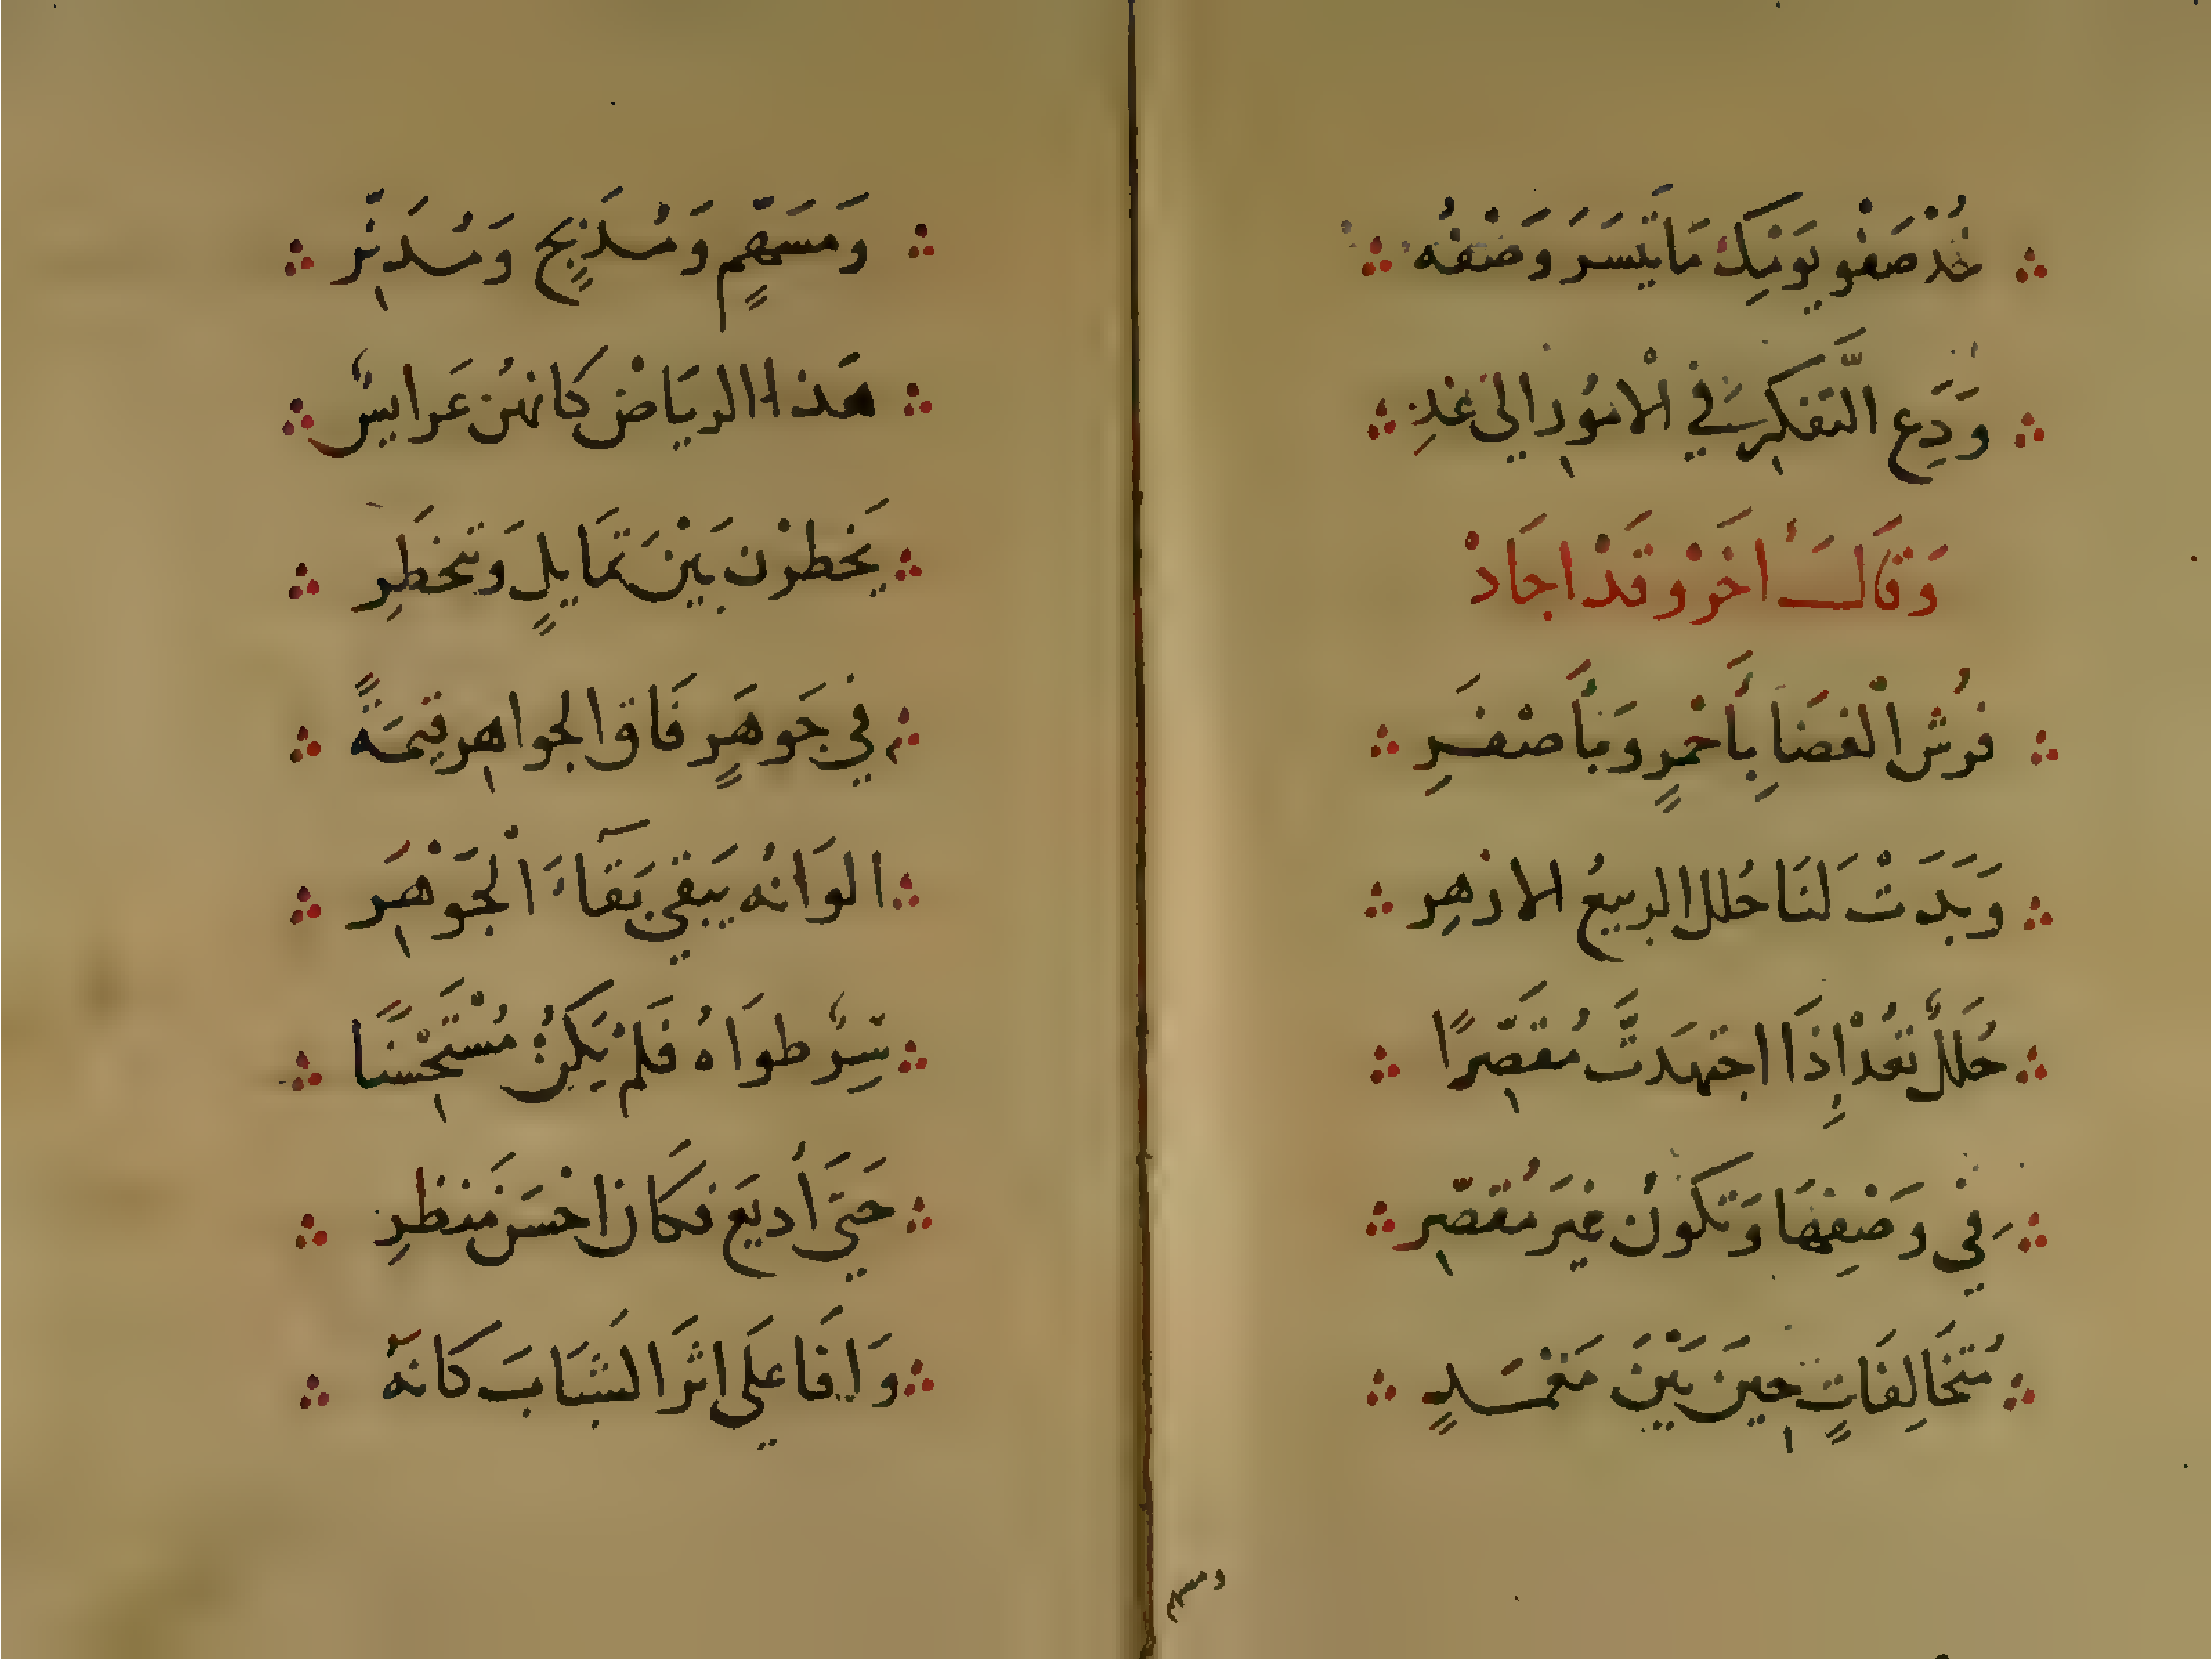 خُذْ صَفْو يَوْمِكَ مَا تَيَسَرَ وَصْفُه
وَدَعِ التَّفَكر فِي الْامُورِ الى غدِ
وَقَالَ اخَرْ وَقَدْ اجَادْ
فُرُشْ الْفضَا بِأَحْمرٍ وَبأَصْفَرِ
وَبَدَتْ لَنَا حُلل الربيعُ الازهرِ
حُلَلٌ تَعُدْ إِذَا اجتهَدتَّ مُقَصِّرًا
فِي وَصْفِهَا وَتَكُونُ غيَر مُقصّرِ
مُتَخَالِفَاتٍ حِينَ بَيْنَ مَغْمَدٍ
ومسهم
وَمسَهّمٍ وَمُدَبّجٍ وَمُدَنّرِ
هَذا الريَاضْ كَانهُن عَرايسٌ
يَخطرْن بَيْنَ تمَايلٍ وَتخطَرِ
فِي جَوهَرٍ فَاق الجواهرِ قيمَةً
الوَانُه يَبقي بَقآءَ الْجَوْهَرِ
سِرٌّ طوَاهُ فَلمْ يَكُنْ مُسْتَحْسَنًا
حَتَى أديَع فَكان احْسَن مَنظرِ
وَافَا علَى اثَر الشَبَابَ كَانهُ